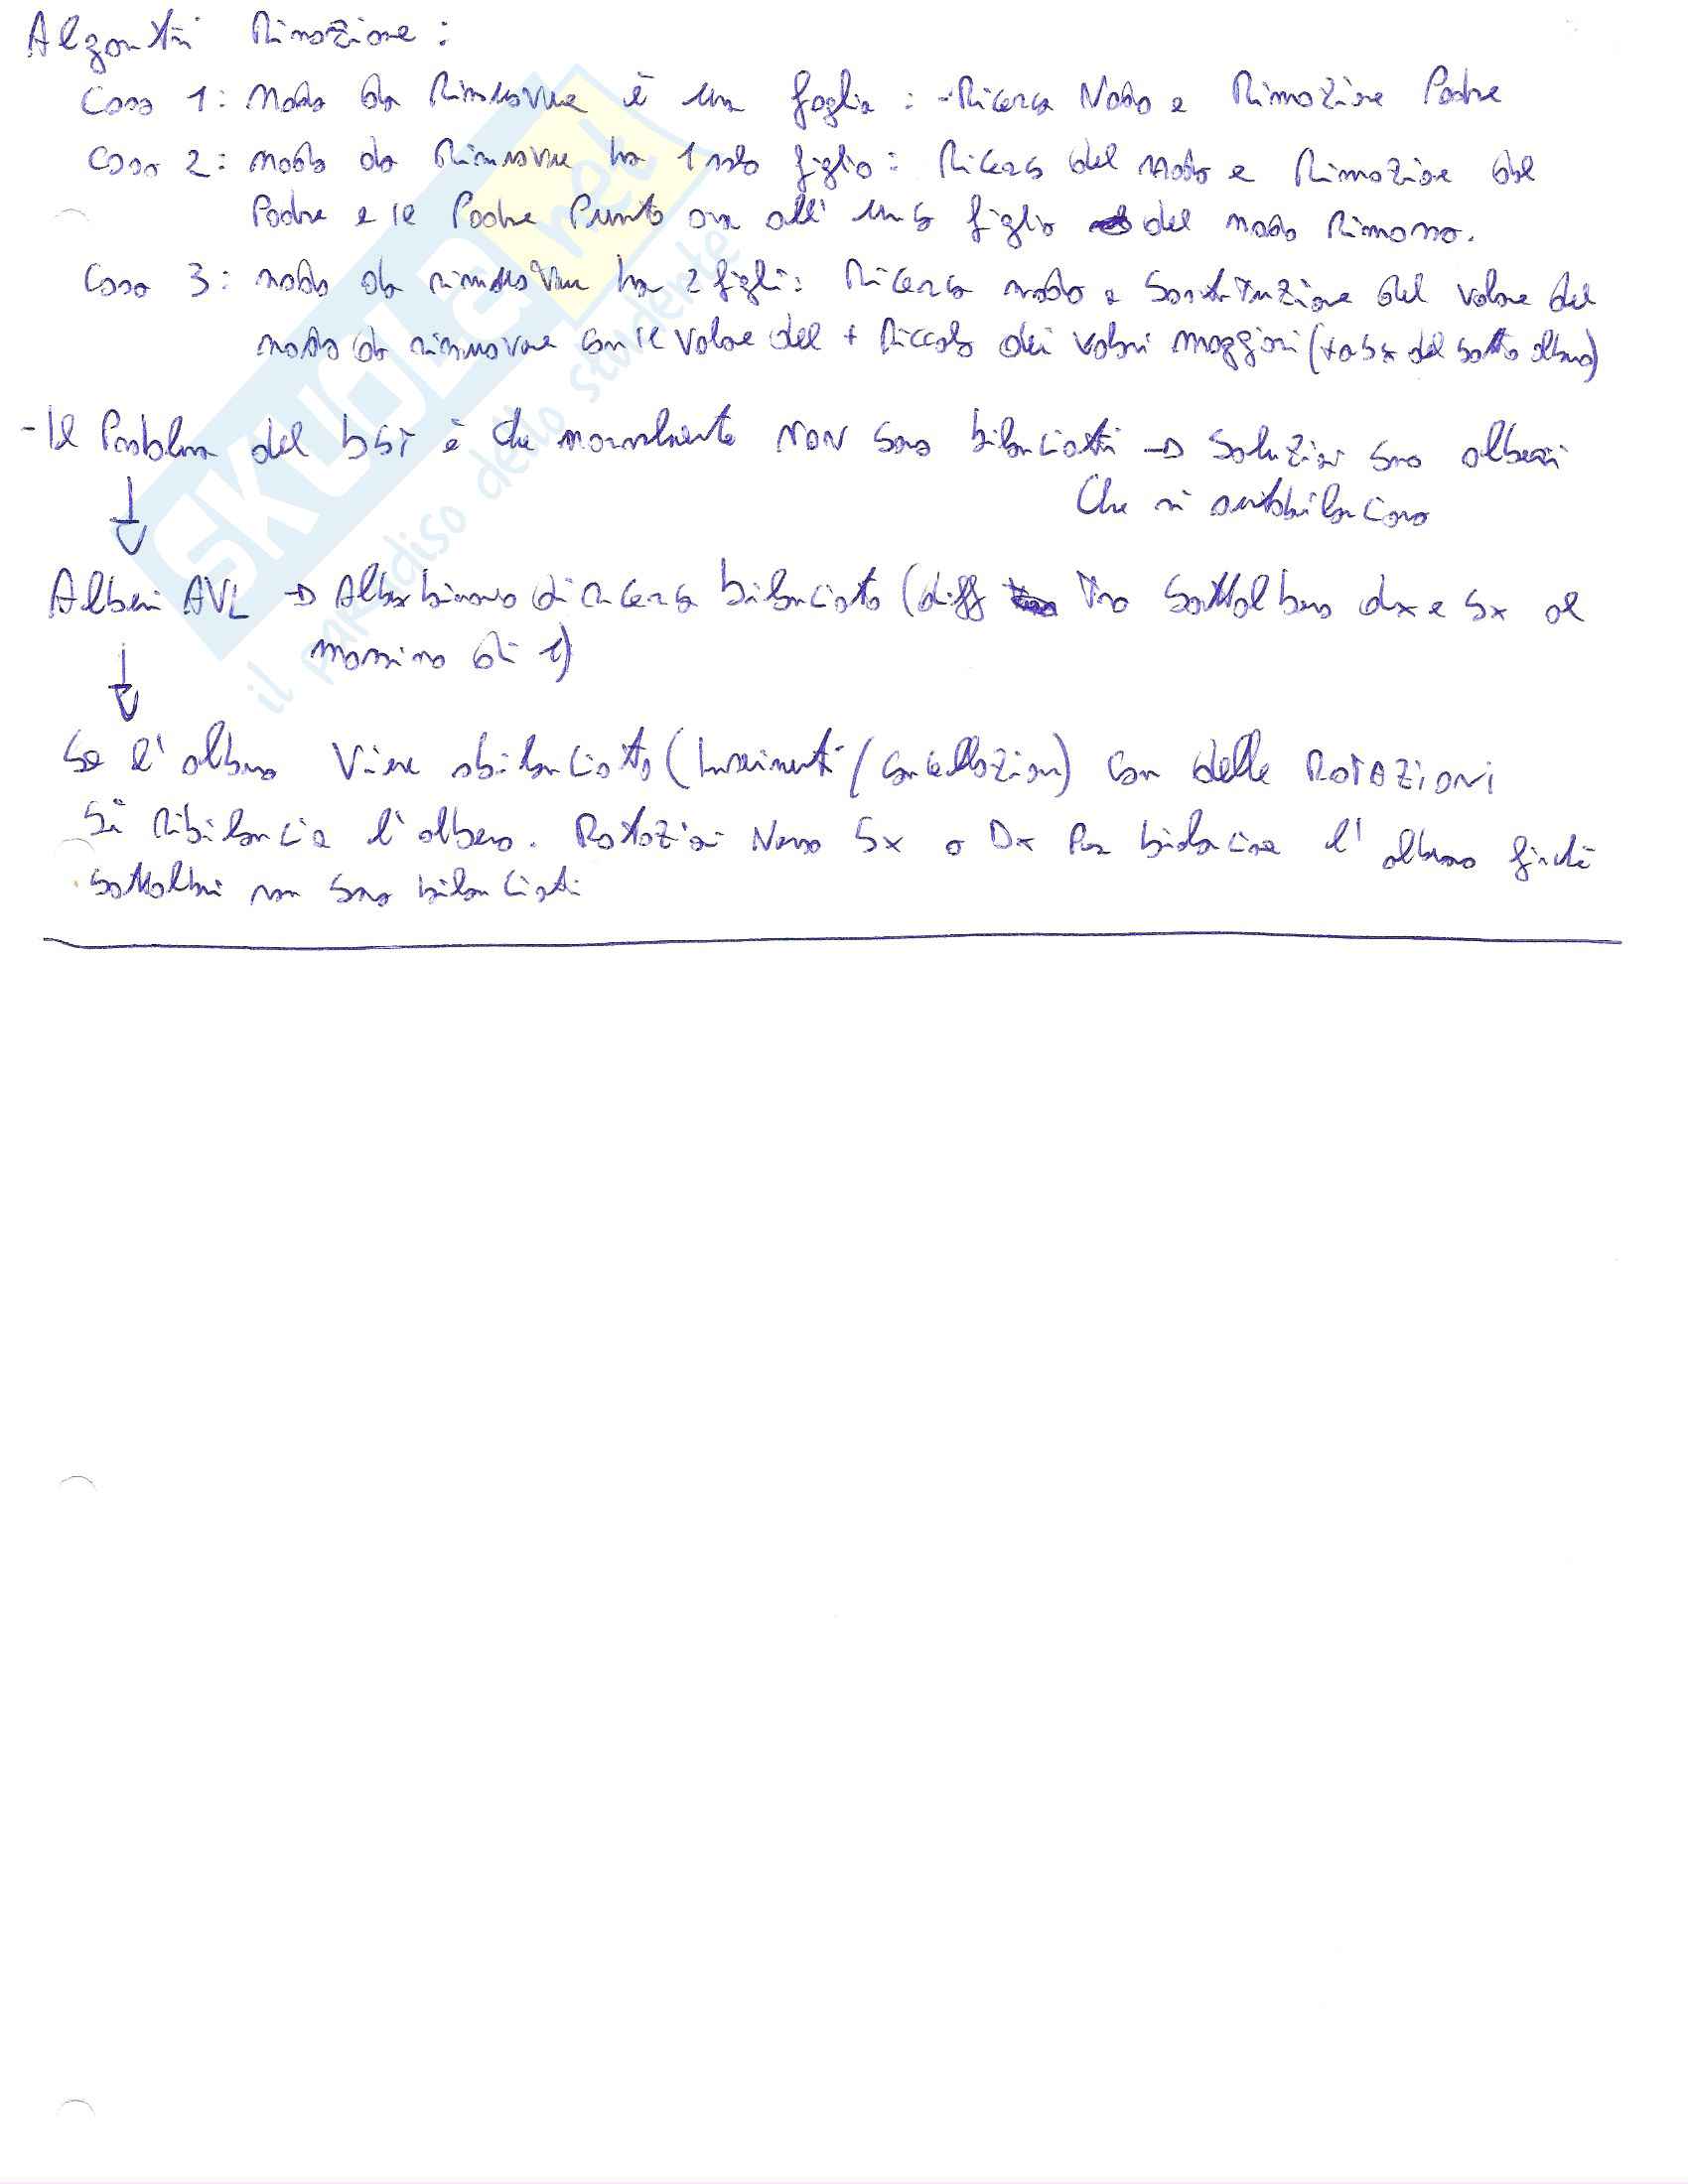 Algoritmi Rimozione :
Caso 1: Nodo da Rimuovere è una foglia : - Ricerca Nodo e Rimozione Padre
Caso 2: nodo da Rimuovere ha 1 solo figlio: Ricerca del nodo e Rimozione dal
Padre e il Padre Punta ora all' unico figlio del nodo Rimosso.
Caso 3: nodo da rimuovere ha 2 figli: Ricerca nodo e Sostituzione del valore del
nodo da rimuovere con il valore del + Piccolo dei valori maggiori (+ a sx del sotto albero)
- Il Problema del BST è che normalmente NON sono bilanciati → Soluzioni sono alberi
Che si autobilanciano
Alberi AVL → Albero binario di ricerca bilanciato (diff Tra Sottoalbero dx e sx al
massimo di 1)
Se l'albero Viene sbilanciato (Inserimenti / Cancellazioni) Con delle ROTAZIONI
Si Ribilancia l'albero. Rotazioni Verso Sx o Dx Per bilanciare l' albero finchè
Sottoalberi non sono bilanciati
SKUOLA.net
il paradiso dello studente